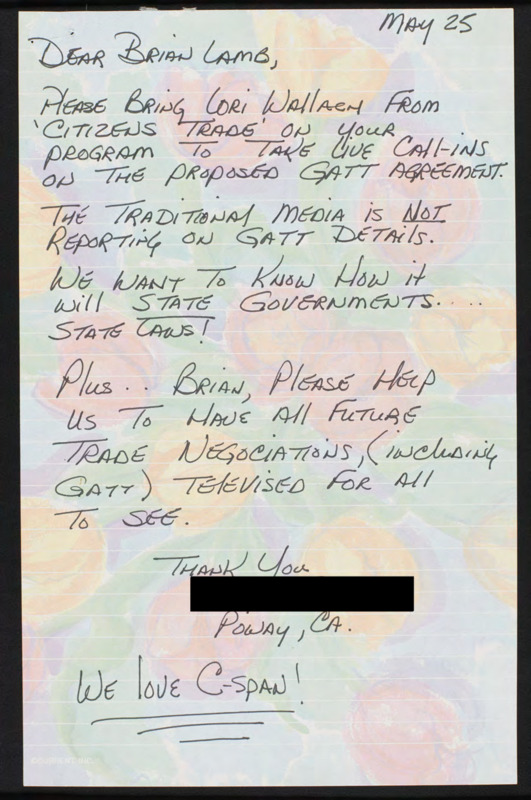 MAY 25
DEAR BRIAN LAMB,
PLEASE BRING LORI WALLACH FROM
'CITIZENS TRADE' ON YOUR
PROGRAM TO TAKE LIVE CALL-INS
ON THE PROPOSED GATT AGREEMENT.
THE TRADITIONAL MEDIA IS NOT
REPORTING ON GATT DETAILS.
WE WANT TO KNOW HOW IT
WILL STATE GOVERNMENTS.....
STATE LAWS!
PLUS.. BRIAN, PLEASE HELP
US TO HAVE ALL FUTURE
TRADE NEGOCIATIONS, (INCLUDING
GATT) TELEVISED FOR ALL
TO SEE.
THANK YOU
POWAY, CA.
WE LOVE C-SPAN!